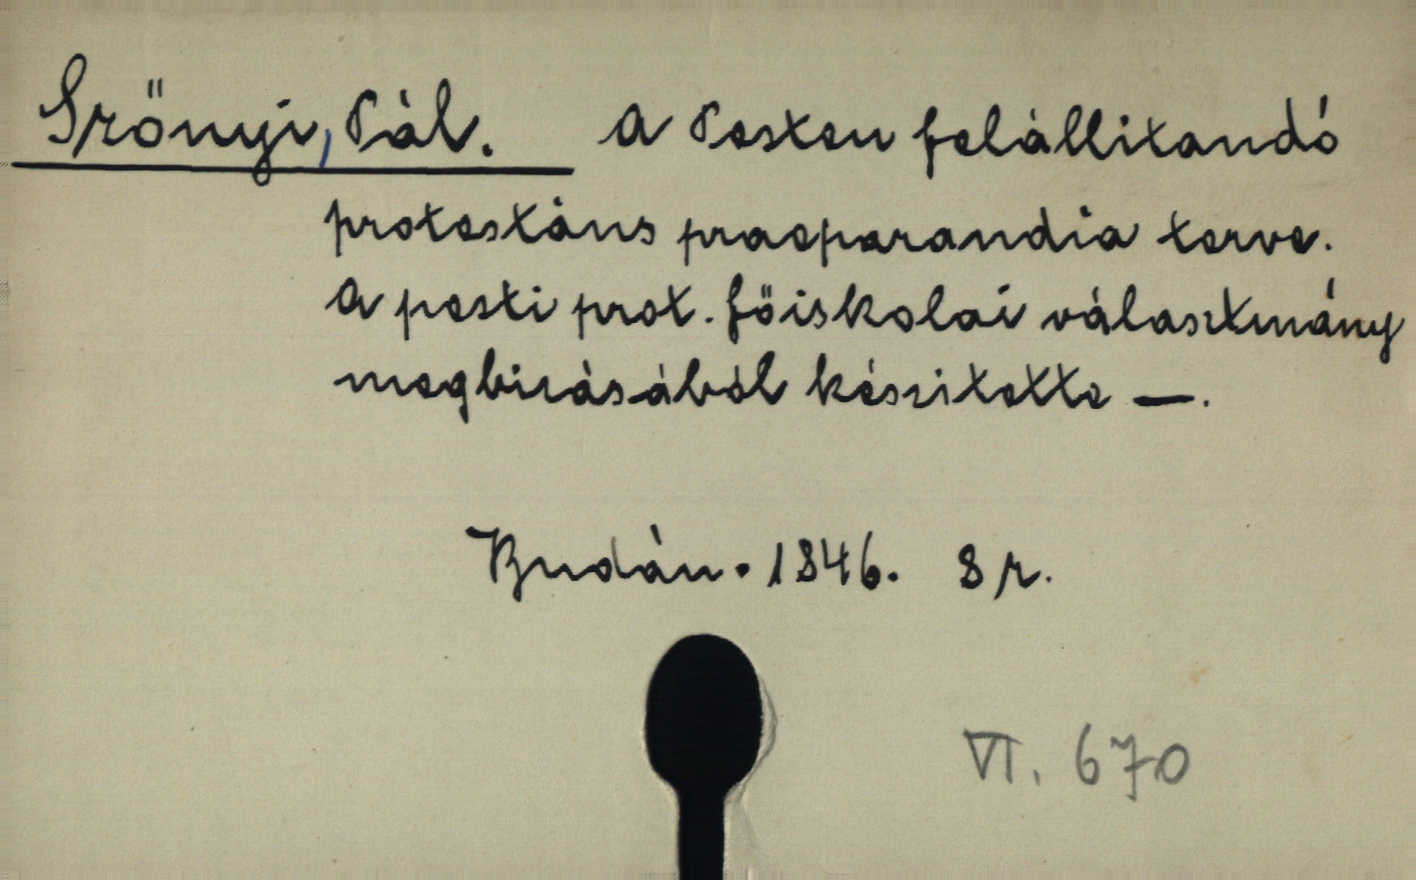 Szőnyi, Pál. A Pesten felállitandó
protestáns praeparandia terve.
A pesti prot. főiskolai választmány
megbizásából készitette —.
Budán. 1846. 8 r.
VI. 670